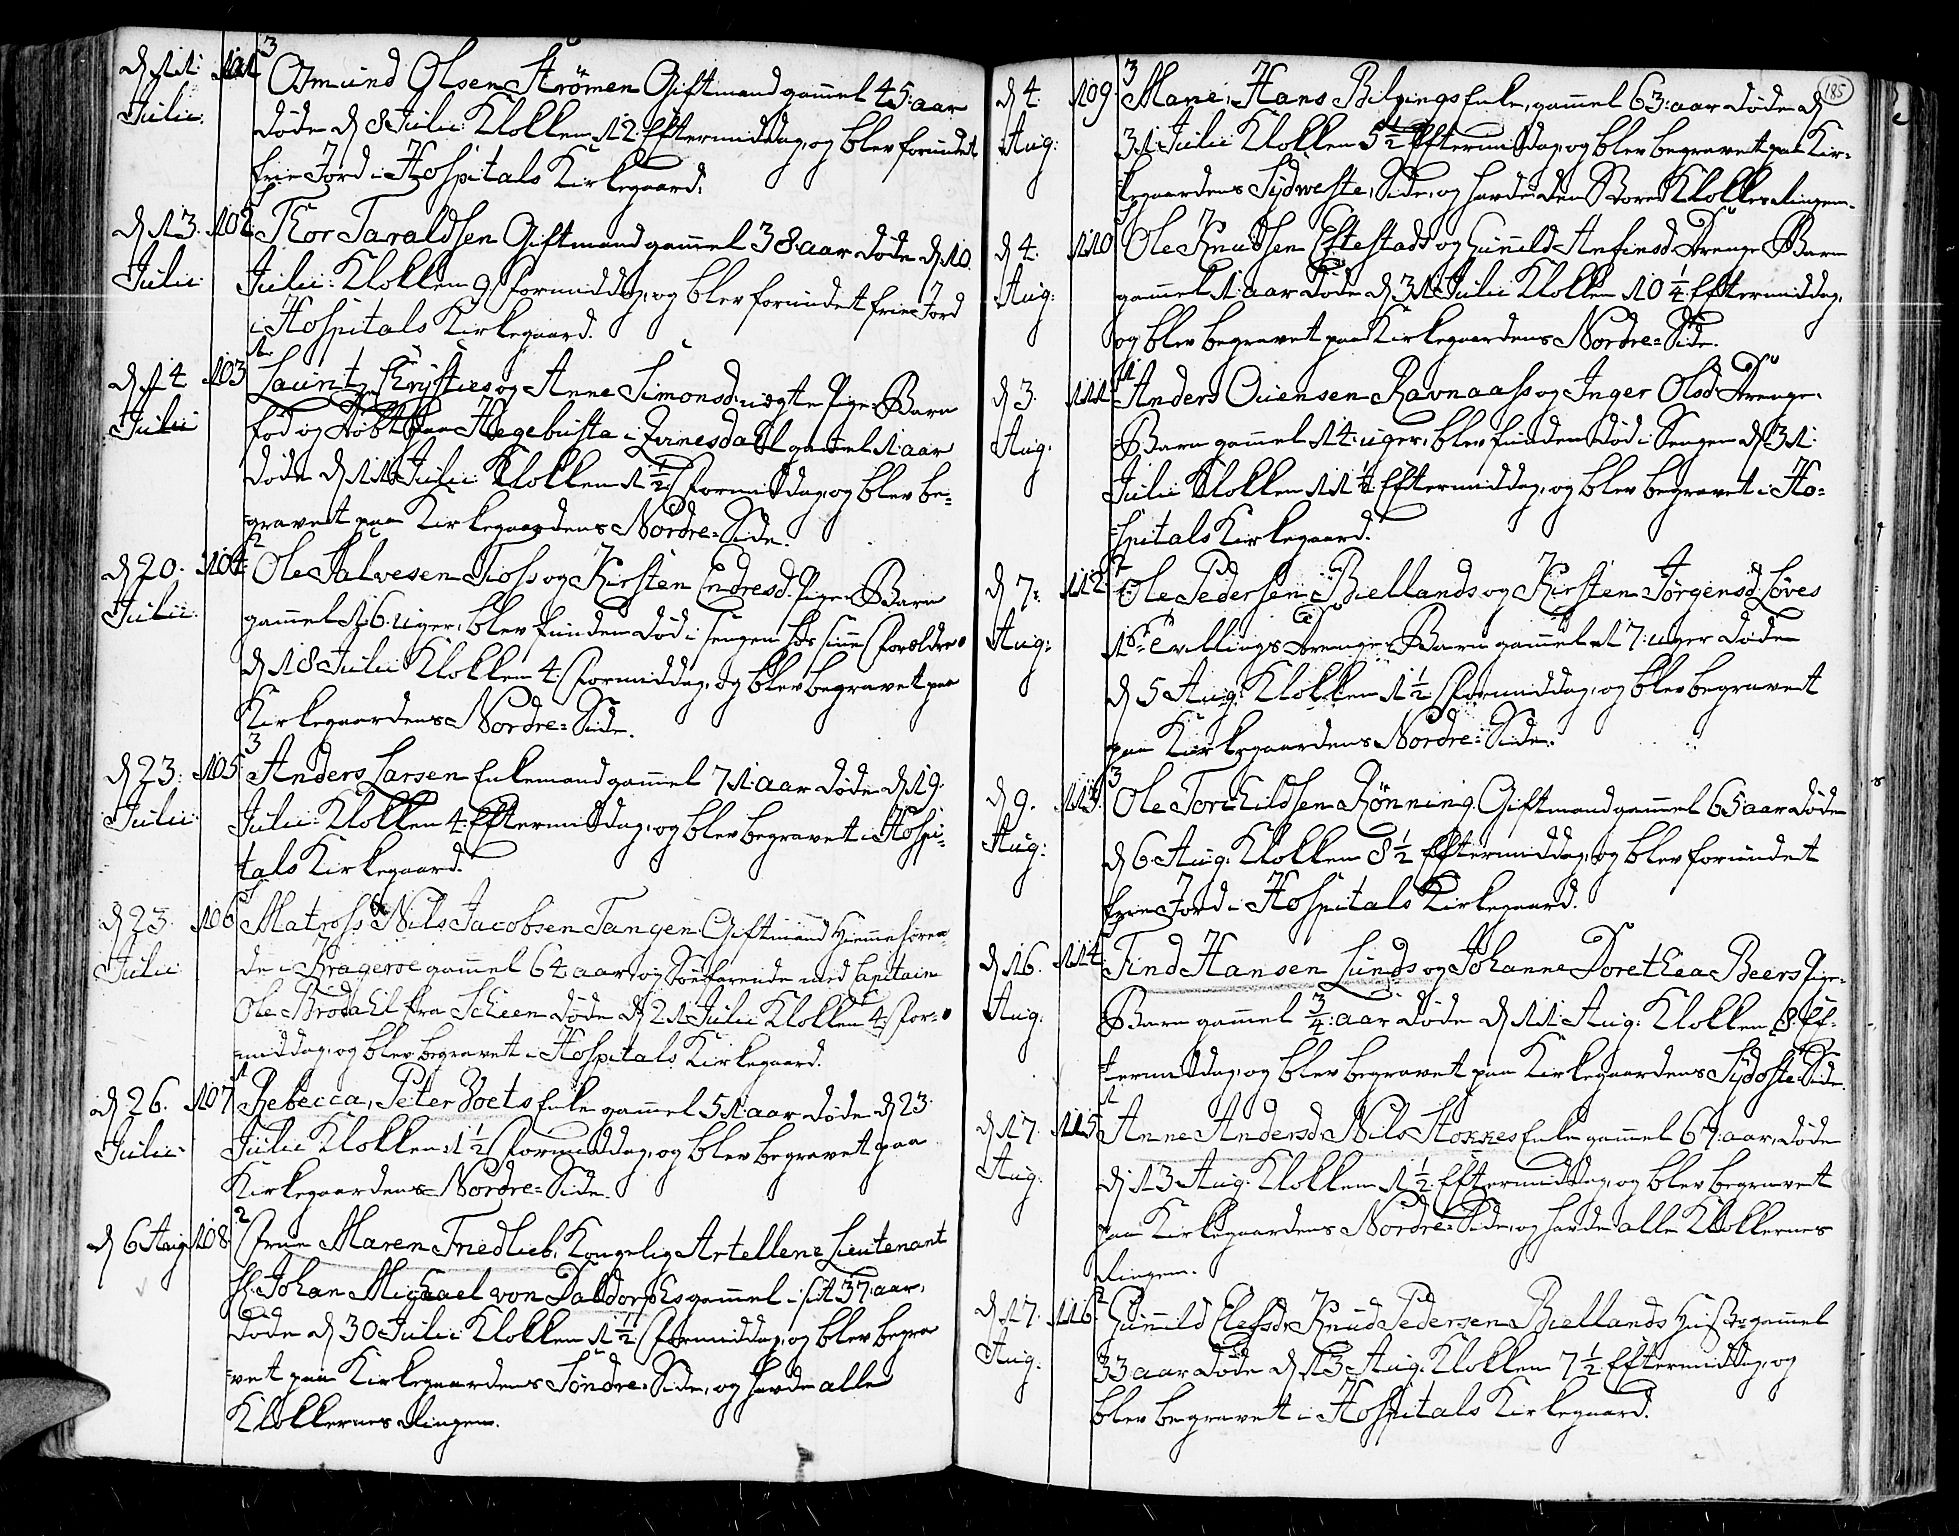 d 11: 101 3 Osmund Olsen Strömen Giftmand gamel 45: aar
Julii: døde d 8 Julii Klokken 12 Eftermiddag, og blev forundet
frie Jord i Hospitals Kirkegaard.
d 13: 102 Thor Taraldsen Giftmand gamel 38 aar døde d 10
Julii Julii: Klokken 9 Formiddag, og blev forundet frie Jord
i Hospitals Kirkegaard.
d 14 103 1 Lauritz Christies og Anne Simonsd: uægte Pige-Barn
Julii fød og døbt paa Hegebusta i Qvinesdahl gamel 1 aar
døde d 11 Julii Klokken 1 1/2 Formiddag, og blev be-
gravet paa Kirkegaardens Nordre-Side.
d 20. 104 2 Ole Salvesen Foss og Kirsten Endresd: Pige-Barn
Julii. gamel 16 uger, blev funden død i sengen hos sinne Forældre
d 18 Julii Klokken 4: Formiddag, og blev begravet paa
Kirkegaardens Nordre-Side.
d 23: 105 3 Anders Larsen Enkemand gamel 71: aar døde d 19.
Julii: Julii: Klokken 4: Eftermiddag, og blev begravet i Hospi-
tals Kirkegaard.
d 23. 106 Matross Nils Jacobsen Tangen Giftmand Hiemmehøren-
Julii de i Krageröe gamel 64 aar og Søefarende med Capitain
Ole Brodahl fra Scheen døde d 21 Julii Klokken 4: For-
middag, og blev begravet i Hospitals Kirkegaard.
d 26. 107 1 Rebecca, Peter Voets Enke gamel 51: aar døde d 23.
Julii: Julii Klokken 1 1/2 Formiddag, og blev begravet paa
Kirkegaardens Nordre-Side.
d 6 Aug 108 2 Frue Maren Friedlieb, Kongelig Artellerie Lieutenant
Hr. Johan Michael von Dalldorphs gamel i sit 37: aar,
døde d 30 Julii Klokken 11 1/2 Formiddag, og blev begra-
vet paa Kirkegaardens Söndre-Side, og havde alle
Klokkernes Ringen.
185
d 4. 109 3 Marie, Hans Bilgings Enke, gamel 63: aar døde d
Aug: 31 Julii Klokken 5 1/2 Eftermiddag, og blev begravet paa Kir-
kegaardens Sydweste-Side, og havde den Store Klokkes Ringen.
d 4. 110 Ole Knudsen Eftestads og Gunild Anfinsd: Drenge-Barn
Aug: gamel 1: aar døde d 31 Julii Klokken 10 1/4: Eftermiddag,
og blev begravet paa Kirkegaardens Nordre-Side.
d 3. 111 Anders Ouensen Ravnaass og Inger Olsd: Drenge-
Aug. Barn gamel 14: uger, blev funden død i Sengen d 31:
Julii Klokken 11 1/2 Eftermiddag, og blev begravet i Ho-
spitals Kirkegaard.
d 7. 112 Ole Pedersen Biellands og Kirsten Jørgensd: Løves
Aug: Tvillings Drenge-Barn gamel 17 uger døde
d 5 Aug: Klokken 1 1/2 Formiddag, og blev begravet
paa Kirkegaardens Nordre-Side.
d 9. 113 3 Ole Torkildsen Rönning Giftmand gamel 65 aar døde
Aug: d 6 Aug: Klokken 8 1/2 Eftermiddag, og blev forundet
frie Jord i Hospitals Kirkegaard.
d 16. 114 Find Hansen Lunds og Johanne Dorethea Beers Pige-
Aug. Barn gamel 3/4: aar døde d 11: Aug: Klokken 8: Ef-
termiddag, og blev begravet paa Kirkegaardens Sydoste-Side.
d 17. 115 1 Anne Andersd: Nils Stokkes Enke gamel 67: aar, døde
Aug. d 13 Aug: Klokken 1 1/2: Eftermiddag, og blev begravet
paa Kirkegaardens Nordre-Side, og havde alle Klokkernes
Ringen.
d 17. 116 2 Gunild Elefsd: Knud Pedersen Biellands Hustr: gamel
Aug. 33 aar døde d 13 Aug: Klokken 7 1/2: Eftermiddag, og
blev begravet i Hospitals Kirkegaard.